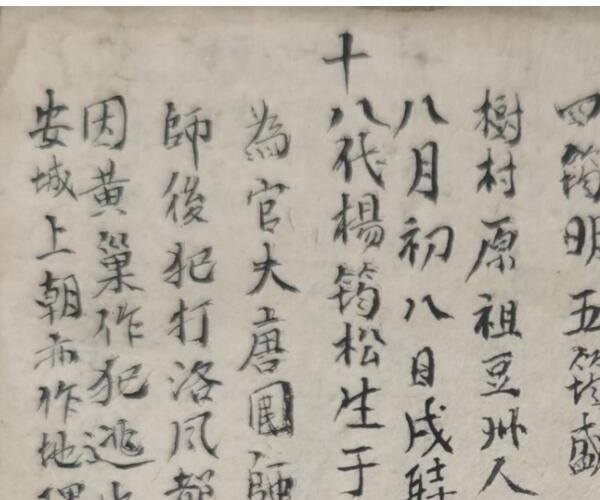 四筠明五筠盛
樹村原祖豆州人
八月初八日戌時
十八代楊筠松生于
為官大唐國師
師後犯打洛风都
因黄巢作犯逃出
安城上朝亦作地理